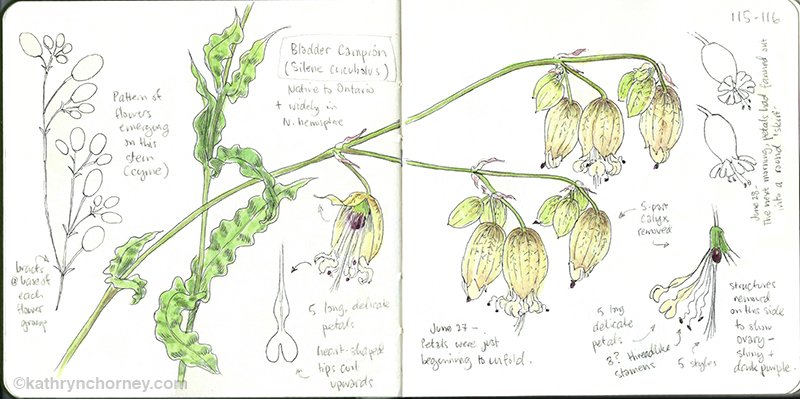 115-116
Bladder Campion
(Silene cucubalus)
Native to Ontario
+ widely in
N. hemisphere
Pattern of
flowers
emerging
on this
stem
(cyme)
bracts
@ base of
each
flower
group
5 long, delicate
petals
heart-shaped
tips curl
upwards
June 27 –
Petals were just
beginning to unfold.
5-part
calyx
removed
5 long
delicate
petals
8? threadlike
stamens
5 styles
structures
removed
on this side
to show
ovary –
shiny +
dark purple.
June 28 –
The next morning, petals had fanned out
into a round "skirt".
©kathrynchorney.com